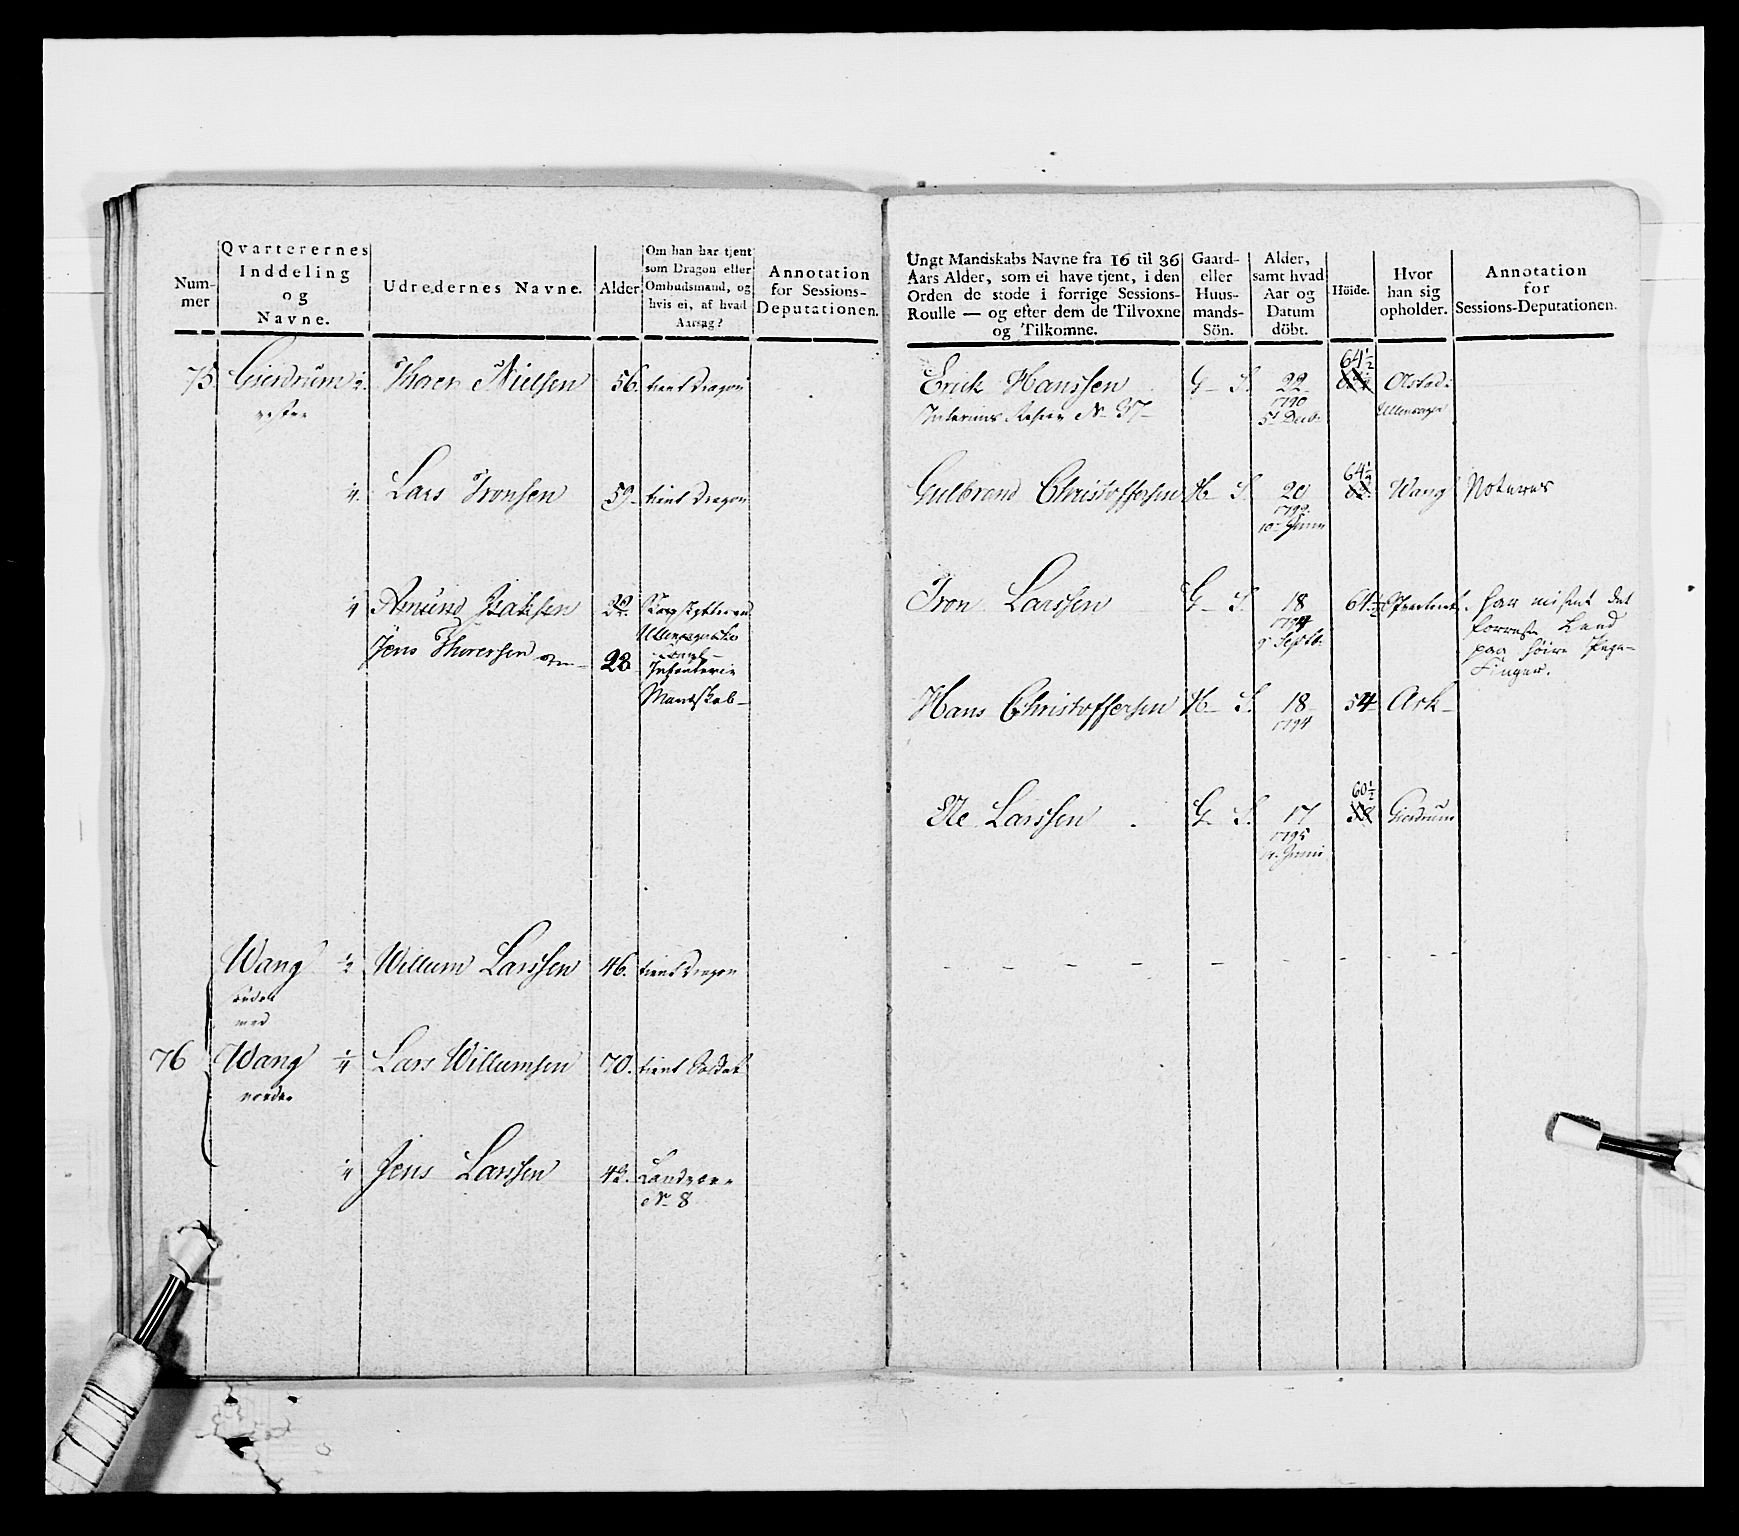 Num-
mer
Qvarterernes
Inddeling
og
Navne.
Udredernes Navne.
Alder
Om han har tjent
som Dragon eller
Ombudsmand, og
hvis ei, af hvad
Aarsag?
Annotation
for Sessions-
Deputationen.
75. Gierdrum ½. Thoer Nielsen 56. tient Dragon
vestre
¼. Lars Tronsen 59. tient Dragon
¼ Amund Isaksen
Jens Thorersen 28
Infanterie
Mandskab
Wang ½ Willum Larssen 46. tient Dragon
søndre
med
76 Wang ¼ Lars Willumsen 70. tient Soldat
nordre
¼ Jens Larssen 42. Landværn
No 8
Ungt Mandskabs Navne fra 16 til 36
Aars Alder, som ei have tjent, i den
Orden de stode i forrige Sessions-
Roulle — og efter dem de Tilvoxne
og Tilkomne.
Gaard-
eller
Huus-
mands-
Sön.
Alder,
samt hvad
Aar og
Datum
döbt.
Höide.
Hvor
han sig
opholder.
Annotation
for
Sessions-Deputationen.
64½
Erick Hanssen G- S. 22
Interims No 37 1790 Ullensager
5t Decb.
64½
Gulbrand Christoffersen H- S. 20 Wang Noteres
1792
10 Junii
Tron Larssen G- S. 18 64½ har mistet det
1794 forreste Leed
9 Septb. paa høire Pege-
Finger.
Hans Christoffersen H- S. 18 54 Ark
1794
60½
Ole Larssen G- S. 17 Gierdrum
1795
Junii
- - - - - - - - -